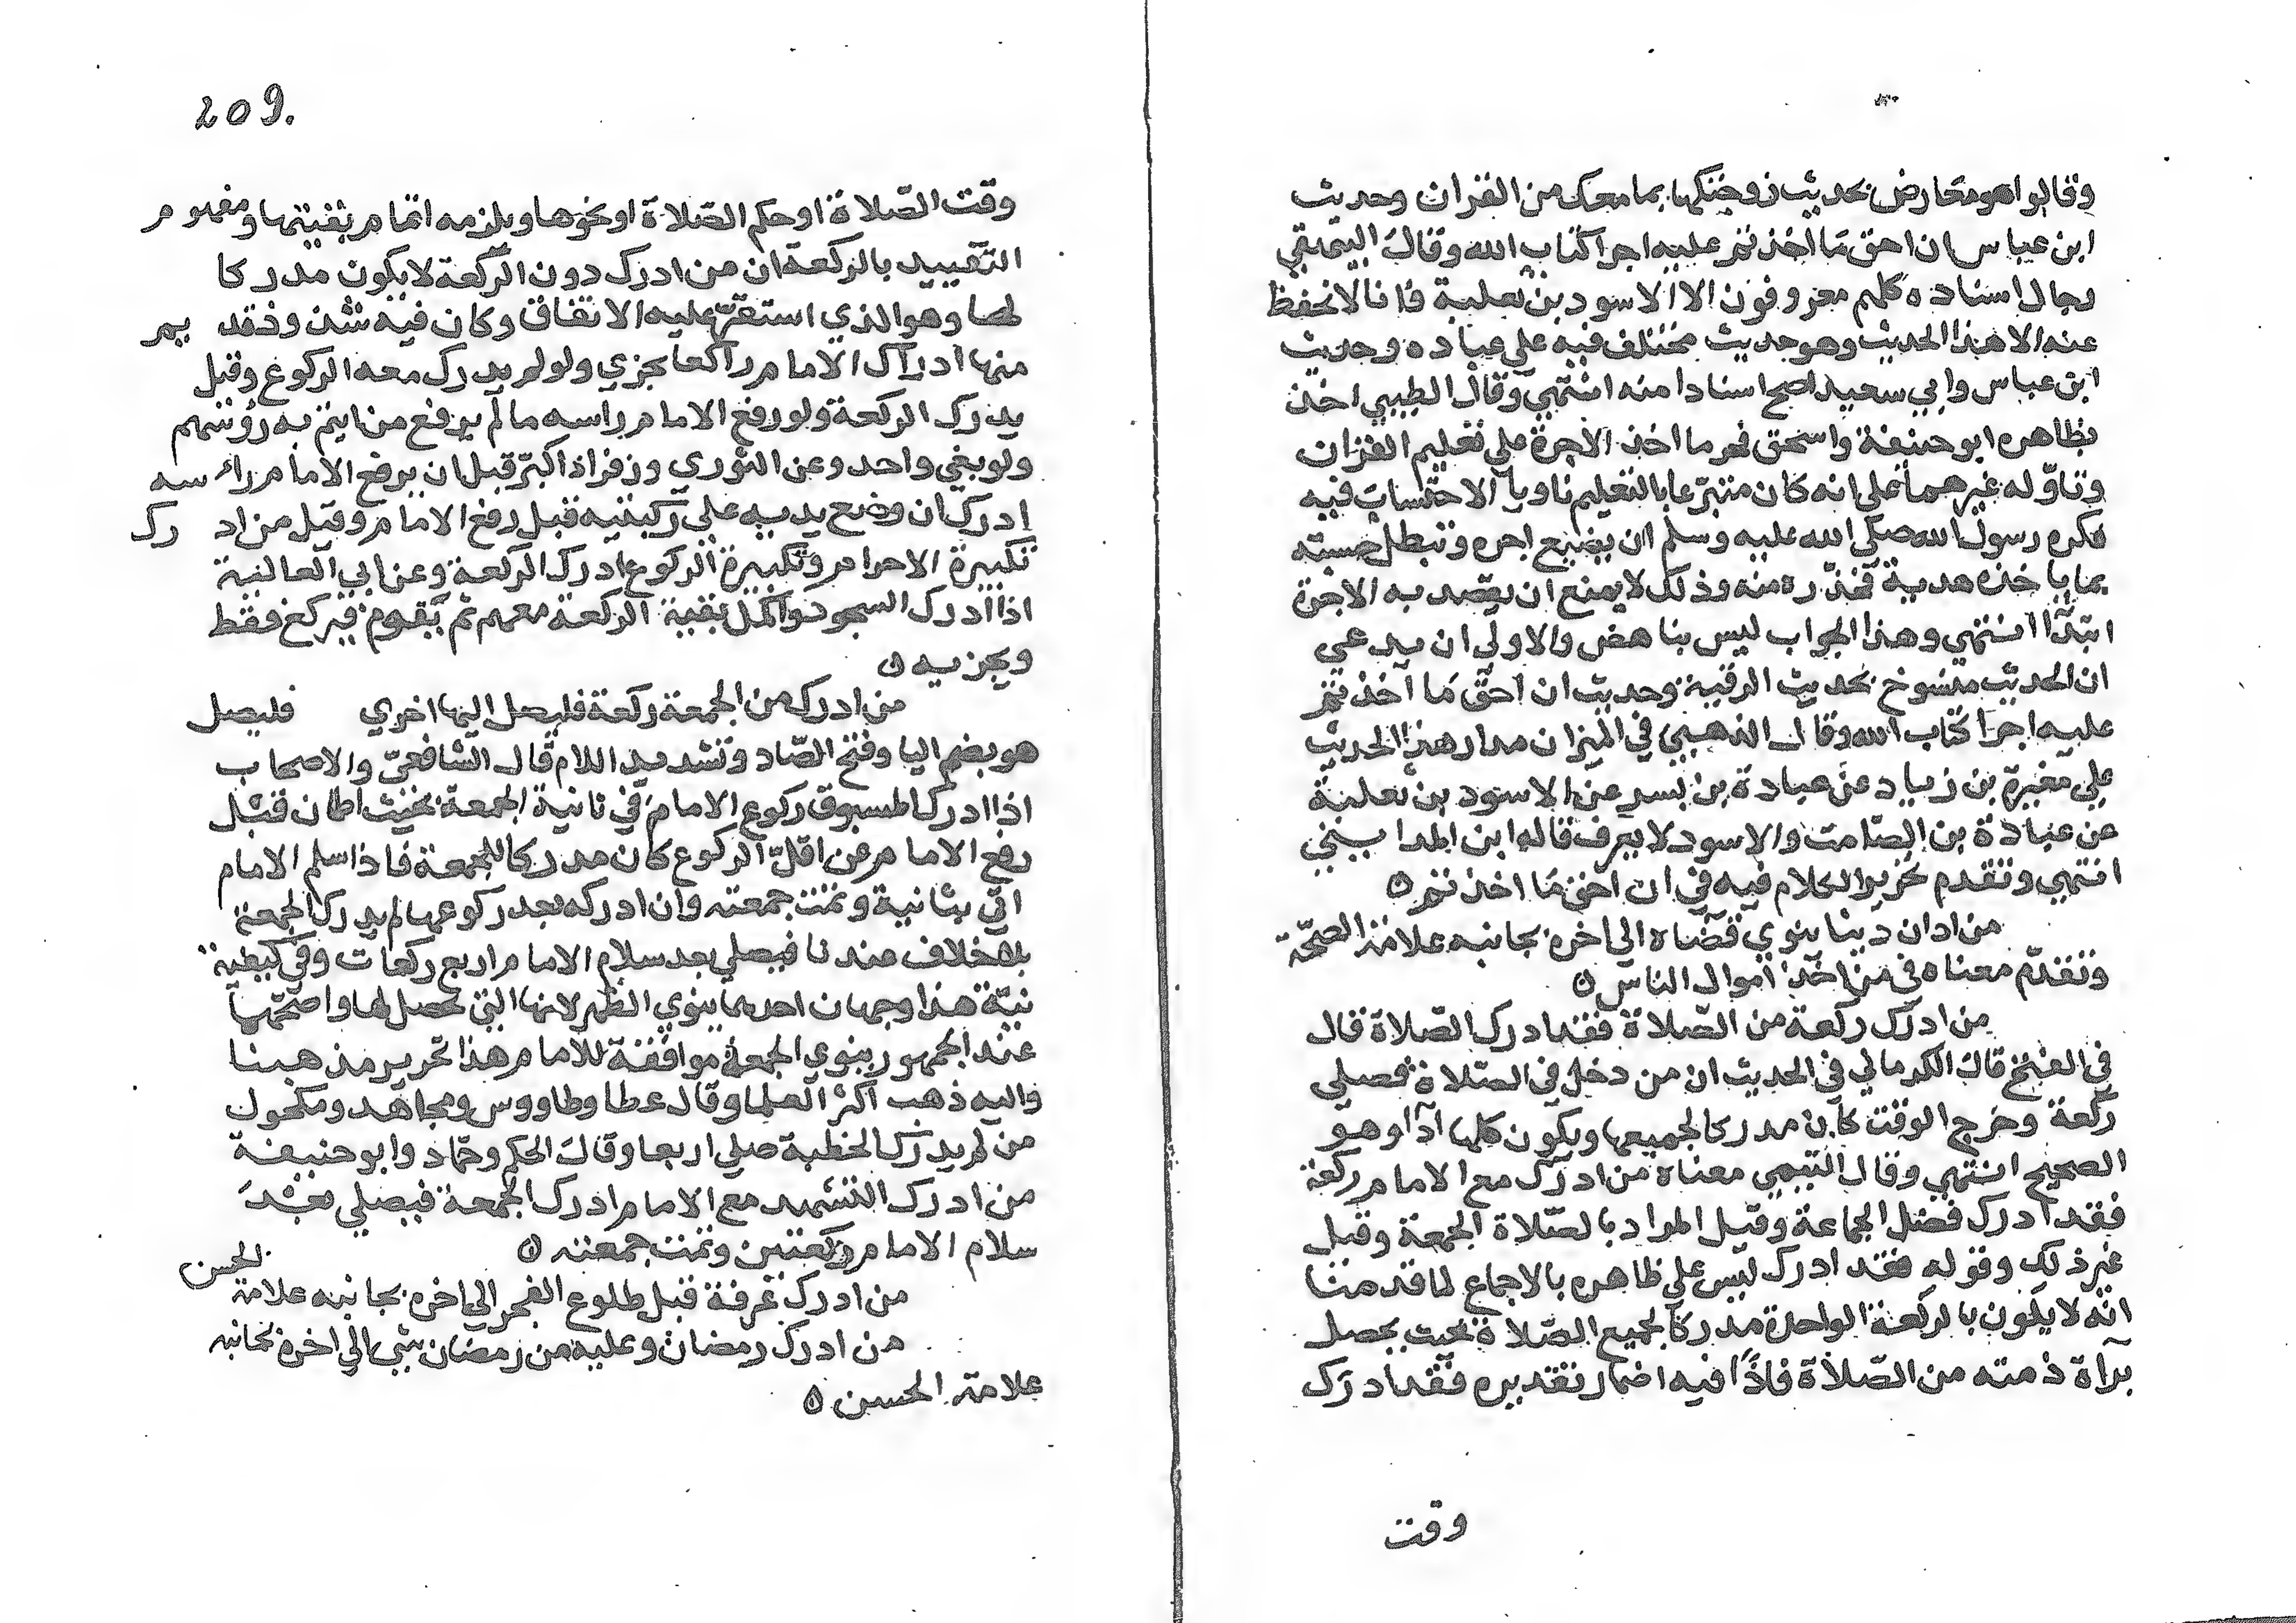 وقالوا هو معارض بحديث زوجتكها بما معك من القران وحديث
ابن عباس ان احق ما اخذتم عليه اجرا كتاب الله وقال البيهقي
رجال اسناده كلهم معروفون الا الاسود بن ثعلبة فانا لا نحفظ
عنه الا هذا الحديث وهو حديث مختلف فيه علي عباده وحديث
ابن عباس وابي سعيد اصح اسنادا منه انتهي وقال الطيبي اخذ
بظاهره ابو حنيفة واسحق فحرما اخذ الاجرة علي تعليم القران
وتاوّله غيرهما علي انه كان متبرّعا بالتعليم ناويا الاحتساب فيه
فكره رسول الله صلي الله عليه وسلم ان يضيع اجره وتبطل حسبته
بما ياخذه هدية فحذّره منه وذلك لا يمنع ان يقصد به الاجرة
ابتدآا انتهي وهذا الجواب ليس بناهض والاولي ان يدعي
ان الحديث منسوخ بحديث الرقية وحديث ان احقّ ما اخذتم
عليه اجرا كتاب الله وقال الذهبي في الميزان مدار هذا الحديث
علي مغيرة بن زياد عن عبادة بن نسر عن الاسود بن ثعلبة
عن عبادة بن الصّامت والاسود لا يعرف قاله ابن المدايني
انتهي وتقدم تحرير الكلام فيه في ان احق ما اخذتم ٥
من ادان دينا ينوي قضاه الي اخره بجانبه علامة الصحّة
وتقدّم معناه في من اخذ اموال الناس ٥
من ادرك ركعة من الصّلاة فقد ادرك الصّلاة قال
في الفتح قال الكرماني في الحديث ان من دخل في الصّلاة فصلي
ركعة وخرج الوقت كان مدركا لجميعها ويكون كلها ادآا وهو
الصحيح انتهي وقال التيمي معناه من ادرك مع الامام ركعة
فقد ادرك فضل الجماعة وقيل المراد بالصّلاة الجمعة وقيل
غير ذلك وقوله فقد ادرك ليس علي ظاهره بالاجماع لما قدمنا
انّه لا يكون بالركعة الواحدة مدركا لجميع الصّلاة بحيث يحصل
برآة ذمته من الصّلاة فاذًا فيه اضمار تقديره فقد ادرك
وقت
209.
وقت الصّلاة او حكم الصّلاة او نحوها ويلزمه اتمام بقيتها ومفهوم
التقييد بالركعة ان من ادرك دون الركعة لا يكون مدركا
لها وهو الذي استقرّ عليه الاتفاق وكان فيه شذوذ قديم
منها ادراك الامام راكعا يجزي ولو لم يدرك معه الركوع وقيل
يدرك الركعة ولو رفع الامام راسه ما لم يرفع من ايتم به رؤسهم
ولو بقي واحد وعن الثوري وزفر اذا كبّر قبل ان يرفع الامام راسه
ادرك ان وضع يديه علي ركبتيه قبل رفع الامام وقيل من ادرك
تكبيرة الاحرام وتكبيرة الركوع ادرك الركعة وعن ابي العالية
اذا ادرك السجود اكمل بقية الركعة معهم ثم يقوم فيركع فقط
ويجزيه ٥
من ادرك من الجمعة ركعة فليصل اليها اخري فليصل
هو بضم اليا وفتح الصّاد وتشديد اللام قال الشافعيّ والاصحاب
اذا ادرك المسبوق ركوع الامام في ثانية الجمعة بحيث اطمان قبل
رفع الامام عن اقلّ الركوع كان مدركا للجمعة فاذا سلم الامام
اتي بثانية وتمت جمعته وان ادركه بعد ركوعها لم يدرك الجمعة
بلا خلاف عندنا فيصلي بعد سلام الامام اربع ركعات وفي كيفية
نيّة هذا وجهان احدهما ينوي الظهر لانها التي تحصل لها واصحّهما
عند الجمهور ينوي الجمعة موافقة للامام هذا تحرير مذهبنا
واليه ذهب اكثر العلما وقال عطا وطاووس ومجاهد ومكحول
من لم يدرك الخطبة صلي اربعا وقال الحكم وحمّاد وابو حنيفة
من ادرك التشهد مع الامام ادرك الجمعة فيصلي بعد
سلام الامام ركعتين وتمت جمعته ٥
من ادرك عرفة قبل طلوع الفجر الي اخره بجانبه علامة الحسن
من ادرك رمضان وعليه من رمضان شي الي اخره بجانبه
علامة الحسن ٥